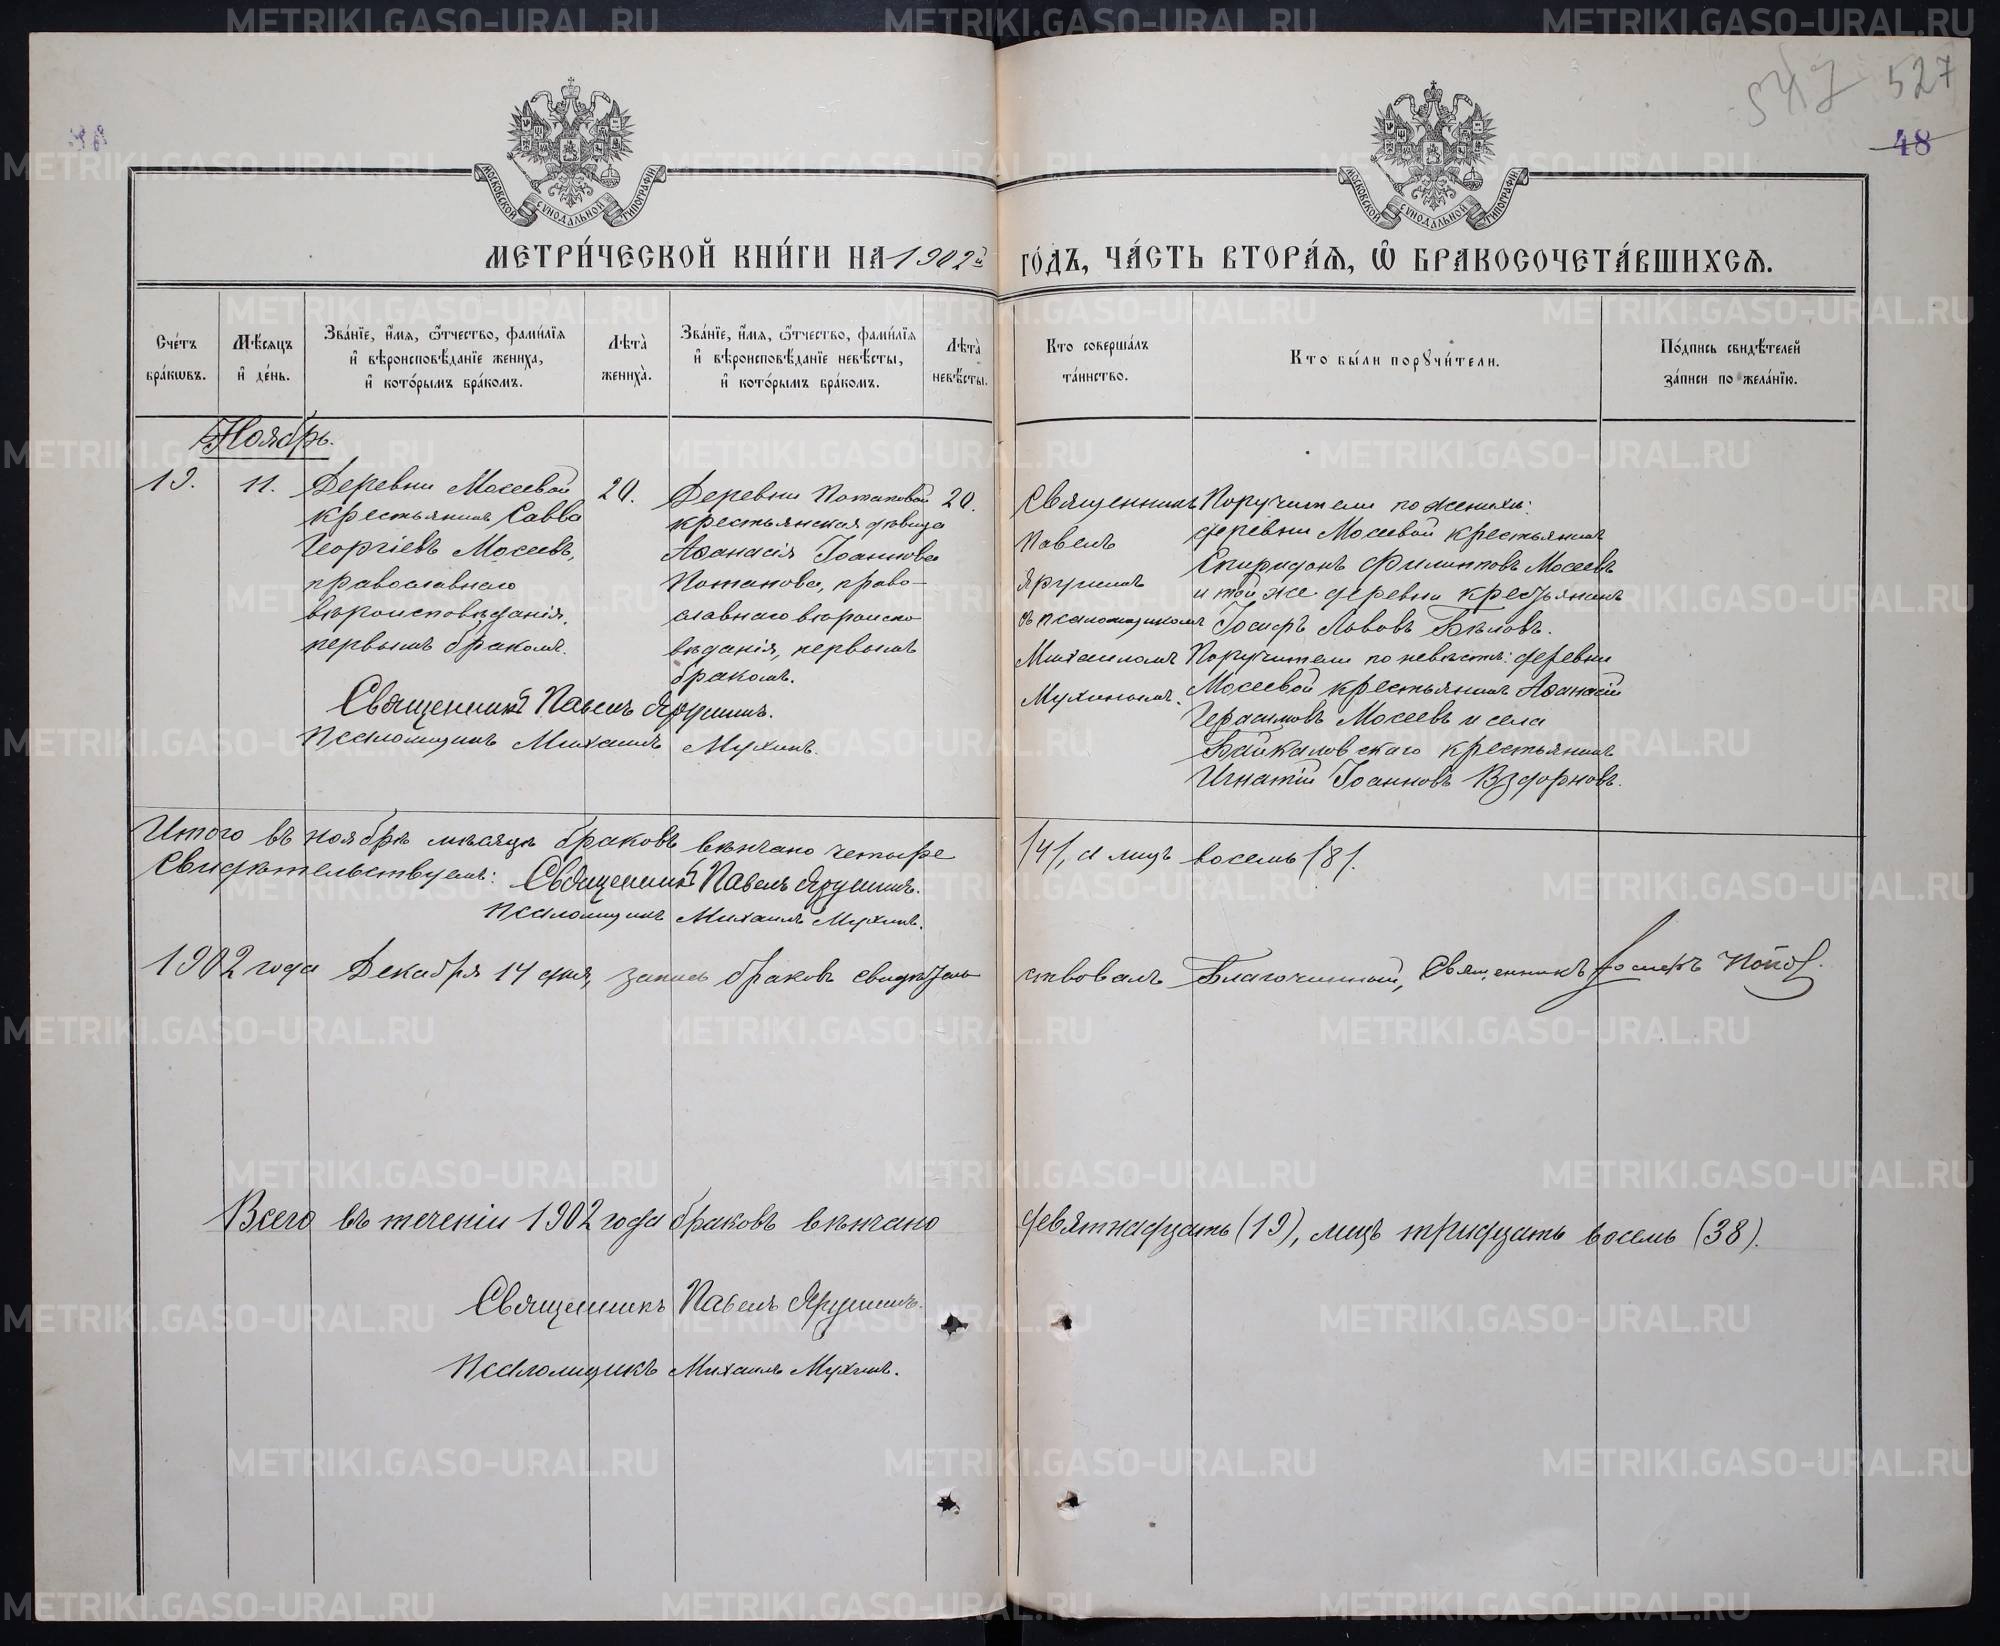 547 527
48
МОСКОВСКОЙ СѴНОДАЛЬНОЙ ТИПОГРАФІИ
МОСКОВСКОЙ СѴНОДАЛЬНОЙ ТИПОГРАФІИ
МЕТРИ́ЧЕСКОЙ КНИ́ГИ НА 1902й ГО́ДЪ, ЧА́СТЬ ВТОРА́Ѧ, Ѡ҆ БРАКОСОЧЕТА́ВШИХСѦ.
Сче́тъ бра́кѡвъ.
Мѣ́сяцъ и҆ де́нь.
Зва́нїе, и҆́мѧ, ѻ҆́тчество, фами́лїѧ и҆ вѣроисповѣ́данїе жениха̀, и҆ кото́рымъ бра́комъ.
Лѣ̀та̀ жениха̀.
Зва́нїе, и҆́мѧ, ѻ҆́тчество, фами́лїѧ и҆ вѣроисповѣ́данїе невѣ́сты, и҆ кото́рымъ бра́комъ.
Лѣ̀та̀ невѣ́сты.
Кто соверша́лъ та́инство.
Кто бы́ли порꙋчи́тели.
По́дпись свидѣ́телей за́писи по жела́нїю.
Ноябрь.
19.
11.
Деревни Мосеевой
крестьянинъ Савва
Георгіевъ Мосеевъ,
православнаго
вѣроисповѣданія,
первымъ бракомъ.
20.
Деревни Потаповой
крестьянская дѣвица
Аѳанасія Іоаннова
Потапова, право-
славнаго вѣроиспо-
вѣданія, первымъ
бракомъ.
20.
Священникъ
Павелъ
Ярушинъ
съ псаломщикомъ
Михаиломъ
Мухинымъ.
Поручители по женихѣ:
деревни Мосеевой крестьянинъ
Спиридонъ Филипповъ Мосеевъ
и той же деревни крестьянинъ
Іосифъ Львовъ Бѣловъ.
Поручители по невѣстѣ: деревни
Мосеевой крестьянинъ Аѳанасій
Герасимовъ Мосеевъ и села
Байкаловскаго крестьянинъ
Игнатій Іоанновъ Вздорновъ.
Священникъ Павелъ Ярушинъ.
Псаломщикъ Михаилъ Мухинъ.
Итого въ ноябрѣ мѣсяцѣ браковъ вѣнчано четыре /4/, а лицъ восемь /8/.
Свидѣтельствуемъ: Священникъ Павелъ Ярушинъ.
Псаломщикъ Михаилъ Мухинъ.
1902 года Декабря 14 дня, запись браковъ свидѣтель- ствовалъ Благочинный, Священникъ Іосифъ Поповъ.
Всего въ теченіи 1902 года браковъ вѣнчано девятнадцать (19), лицъ тридцать восемь (38).
Священникъ Павелъ Ярушинъ.
Псаломщикъ Михаилъ Мухинъ.
METRIKI.GASO-URAL.RU